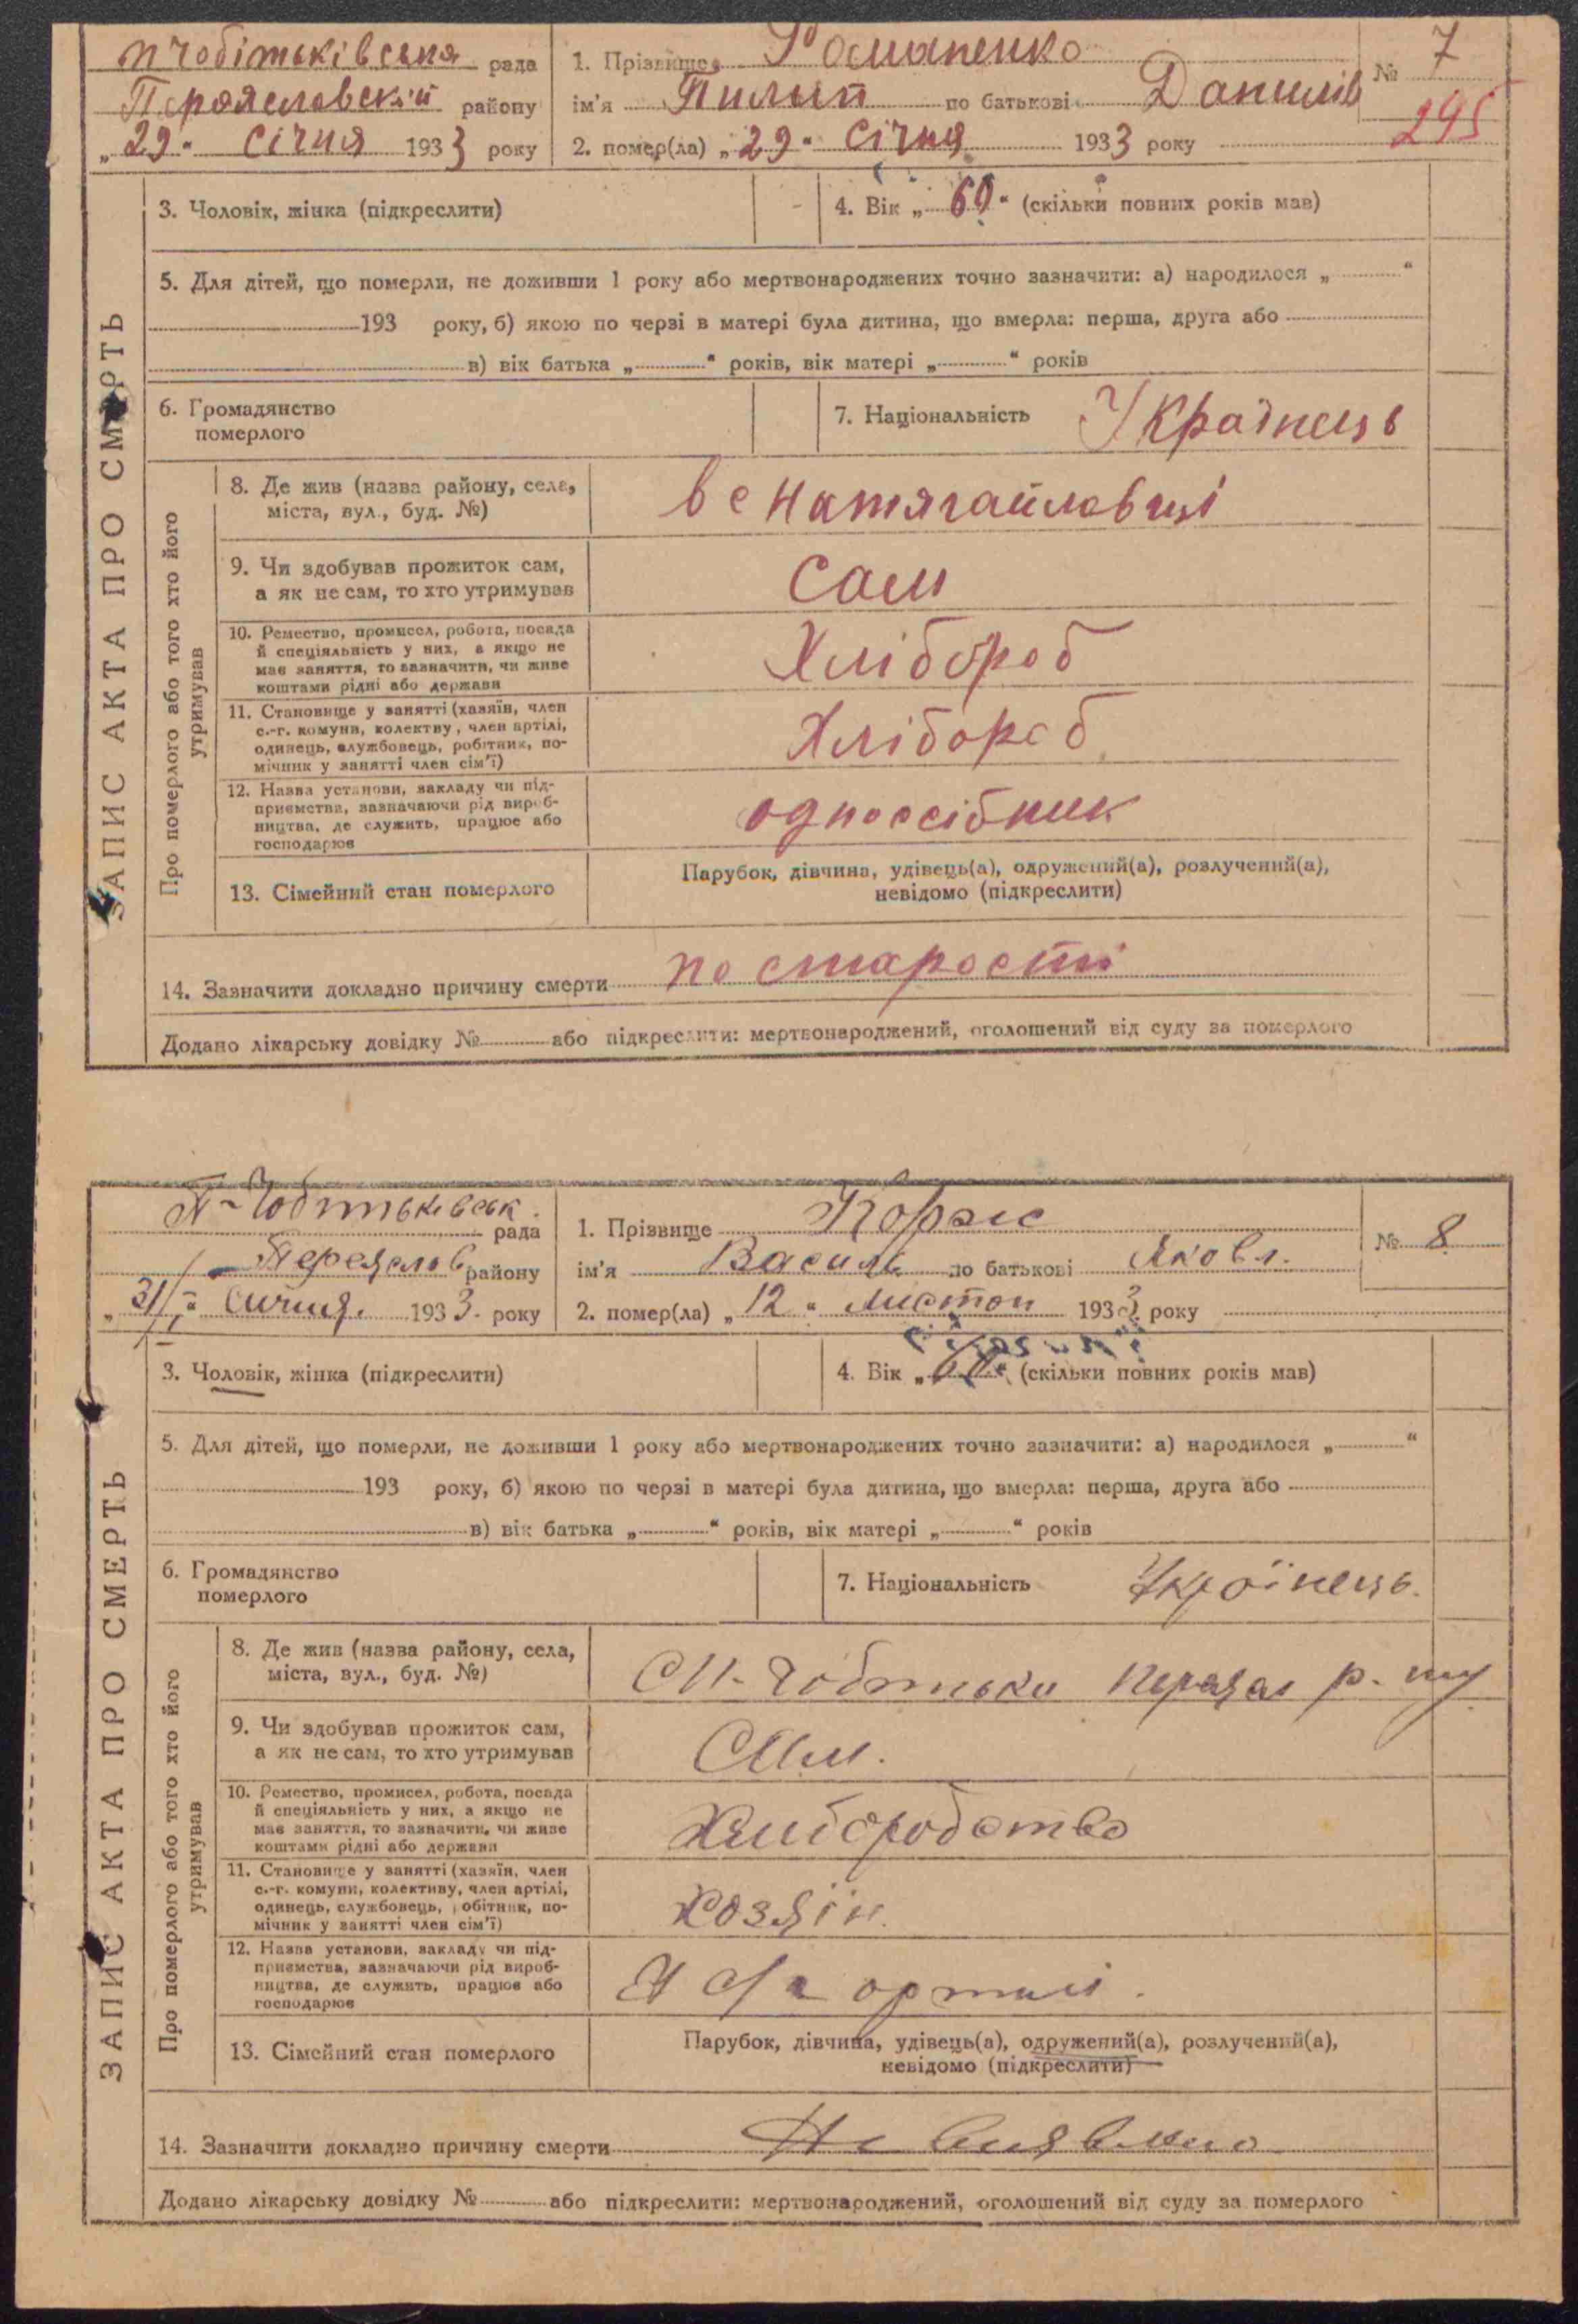 пчобітьківська рада
Переяславский району
„29“ січня 1933 року
1. Прізвище Романенко
ім'я Пилып по батькові Данилів
№ 7
295
2. помер(ла) „29“ січня 1933 року
ЗАПИС АКТА ПРО СМЕРТЬ
3. Чоловік, жінка (підкреслити)
4. Вік „60“ (скільки повних років мав)
5. Для дітей, що померли, не доживши 1 року або мертвонароджених точно зазначити: а) народилося „ “
193 року, б) якою по черзі в матері була дитина, що вмерла: перша, друга або
в) вік батька „ “ років, вік матері „ “ років
6. Громадянство
померлого
7. Національність Українець
Про померлого або того хто його
утримував
8. Де жив (назва району, села,
міста, вул., буд. №)
в с Натягайловці
9. Чи здобував прожиток сам,
а як не сам, то хто утримував
Сам
10. Ремество, промисел, робота, посада
й спеціяльність у них, а якщо не
має заняття, то зазначити, чи живе
коштами рідні або держави
Хлібороб
11. Становище у занятті (хазяїн, член
с.-г. комуни, колективу, член артілі,
одинець, службовець, робітник, по-
мічник у занятті член сім'ї)
Хлібороб
12. Назва установи, закладу чи під-
приємства, зазначаючи рід вироб-
ництва, де служить, працює або
господарює
одноосібник
13. Сімейний стан померлого
Парубок, дівчина, удівець(а), одружений(а), розлучений(а),
невідомо (підкреслити)
14. Зазначити докладно причину смерти по старости
Додано лікарську довідку № або підкреслити: мертвонароджений, оголошений від суду за померлого
П-Чобтьківськ. рада
Переяслов району
„31/I“ сичня. 1933. року
1. Прізвище
ім'я Василь по батькові Яковл.
№ 8
2. помер(ла) „12“ листоп 1933 року
ЗАПИС АКТА ПРО СМЕРТЬ
3. Чоловік, жінка (підкреслити)
4. Вік „60“ (скільки повних років мав)
5. Для дітей, що померли, не доживши 1 року або мертвонароджених точно зазначити: а) народилося „ “
193 року, б) якою по черзі в матері була дитина, що вмерла: перша, друга або
в) вік батька „ “ років, вік матері „ “ років
6. Громадянство
померлого
7. Національність Українець.
Про померлого або того хто його
утримував
8. Де жив (назва району, села,
міста, вул., буд. №)
Чобтьки р-ну
9. Чи здобував прожиток сам,
а як не сам, то хто утримував
Сам.
10. Ремество, промисел, робота, посада
й спеціяльність у них, а якщо не
має заняття, то зазначити, чи живе
коштами рідні або держави
Хлиборобство
11. Становище у занятті (хазяїн, член
с.-г. комуни, колективу, член артілі,
одинець, службовець, робітник, по-
мічник у занятті член сім'ї)
Хозяін.
12. Назва установи, закладу чи під-
приємства, зазначаючи рід вироб-
ництва, де служить, працює або
господарює
У с/г артилі.
13. Сімейний стан померлого
Парубок, дівчина, удівець(а), одружений(а), розлучений(а),
невідомо (підкреслити)
14. Зазначити докладно причину смерти Не виявлено
Додано лікарську довідку № або підкреслити: мертвонароджений, оголошений від суду за померлого